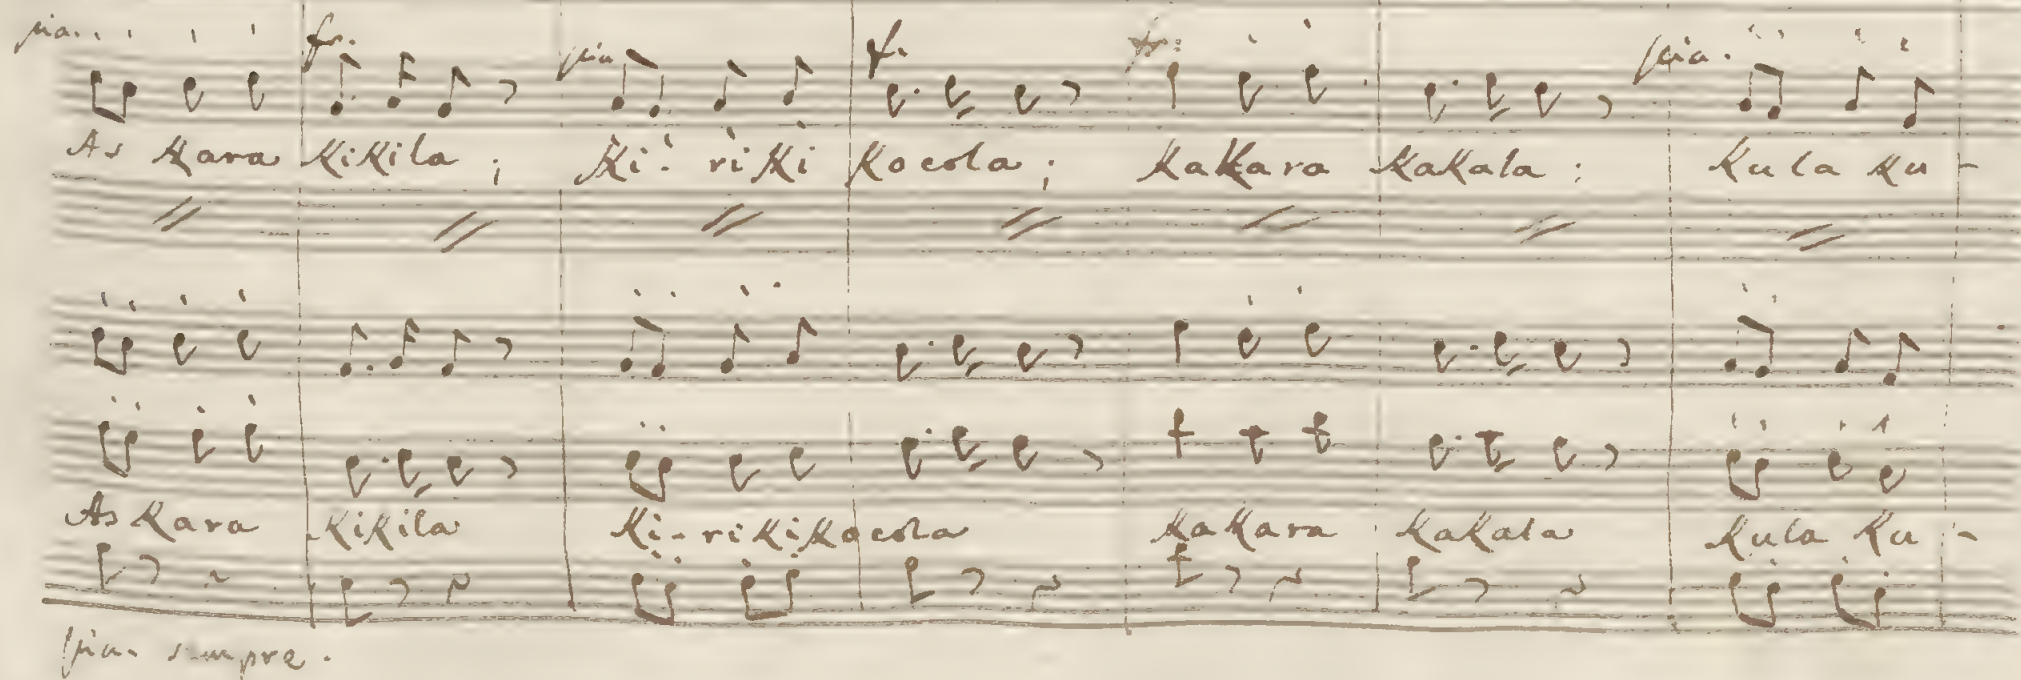 pia. fr. pia f. fr: pia.
As Kara KiKila ; Ki - riKi Kocola ; KaKara KaKala ; Kula Ku -
As Kara KiKila Ki - riKiKocola KaKara KaKala Kula Ku -
pia. sempre.